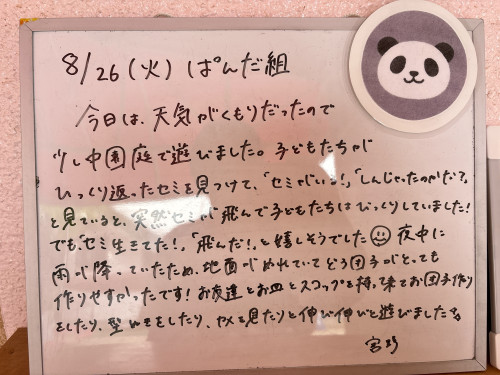 8/26 (火) ぱんだ組
今日は、天気がくもりだったので
少し中園庭で遊びました。子どもたちが
ひっくり返ったセミを見つけて、「セミがいる!」「しんじゃったのかな?」
と見ていると、突然セミが飛んで子どもたちはびっくりしていました!
でも、セミ生きてた!」「飛んだ!」と嬉しそうでした 夜中に
雨が降っていたため、地面がぬれていてどろ団子がとっても
作りやすかったです!お友達とお皿とスコップを持って来てお団子作り
をしたり、型ぬきをしたり、カメを見たりと伸び伸びと遊びました